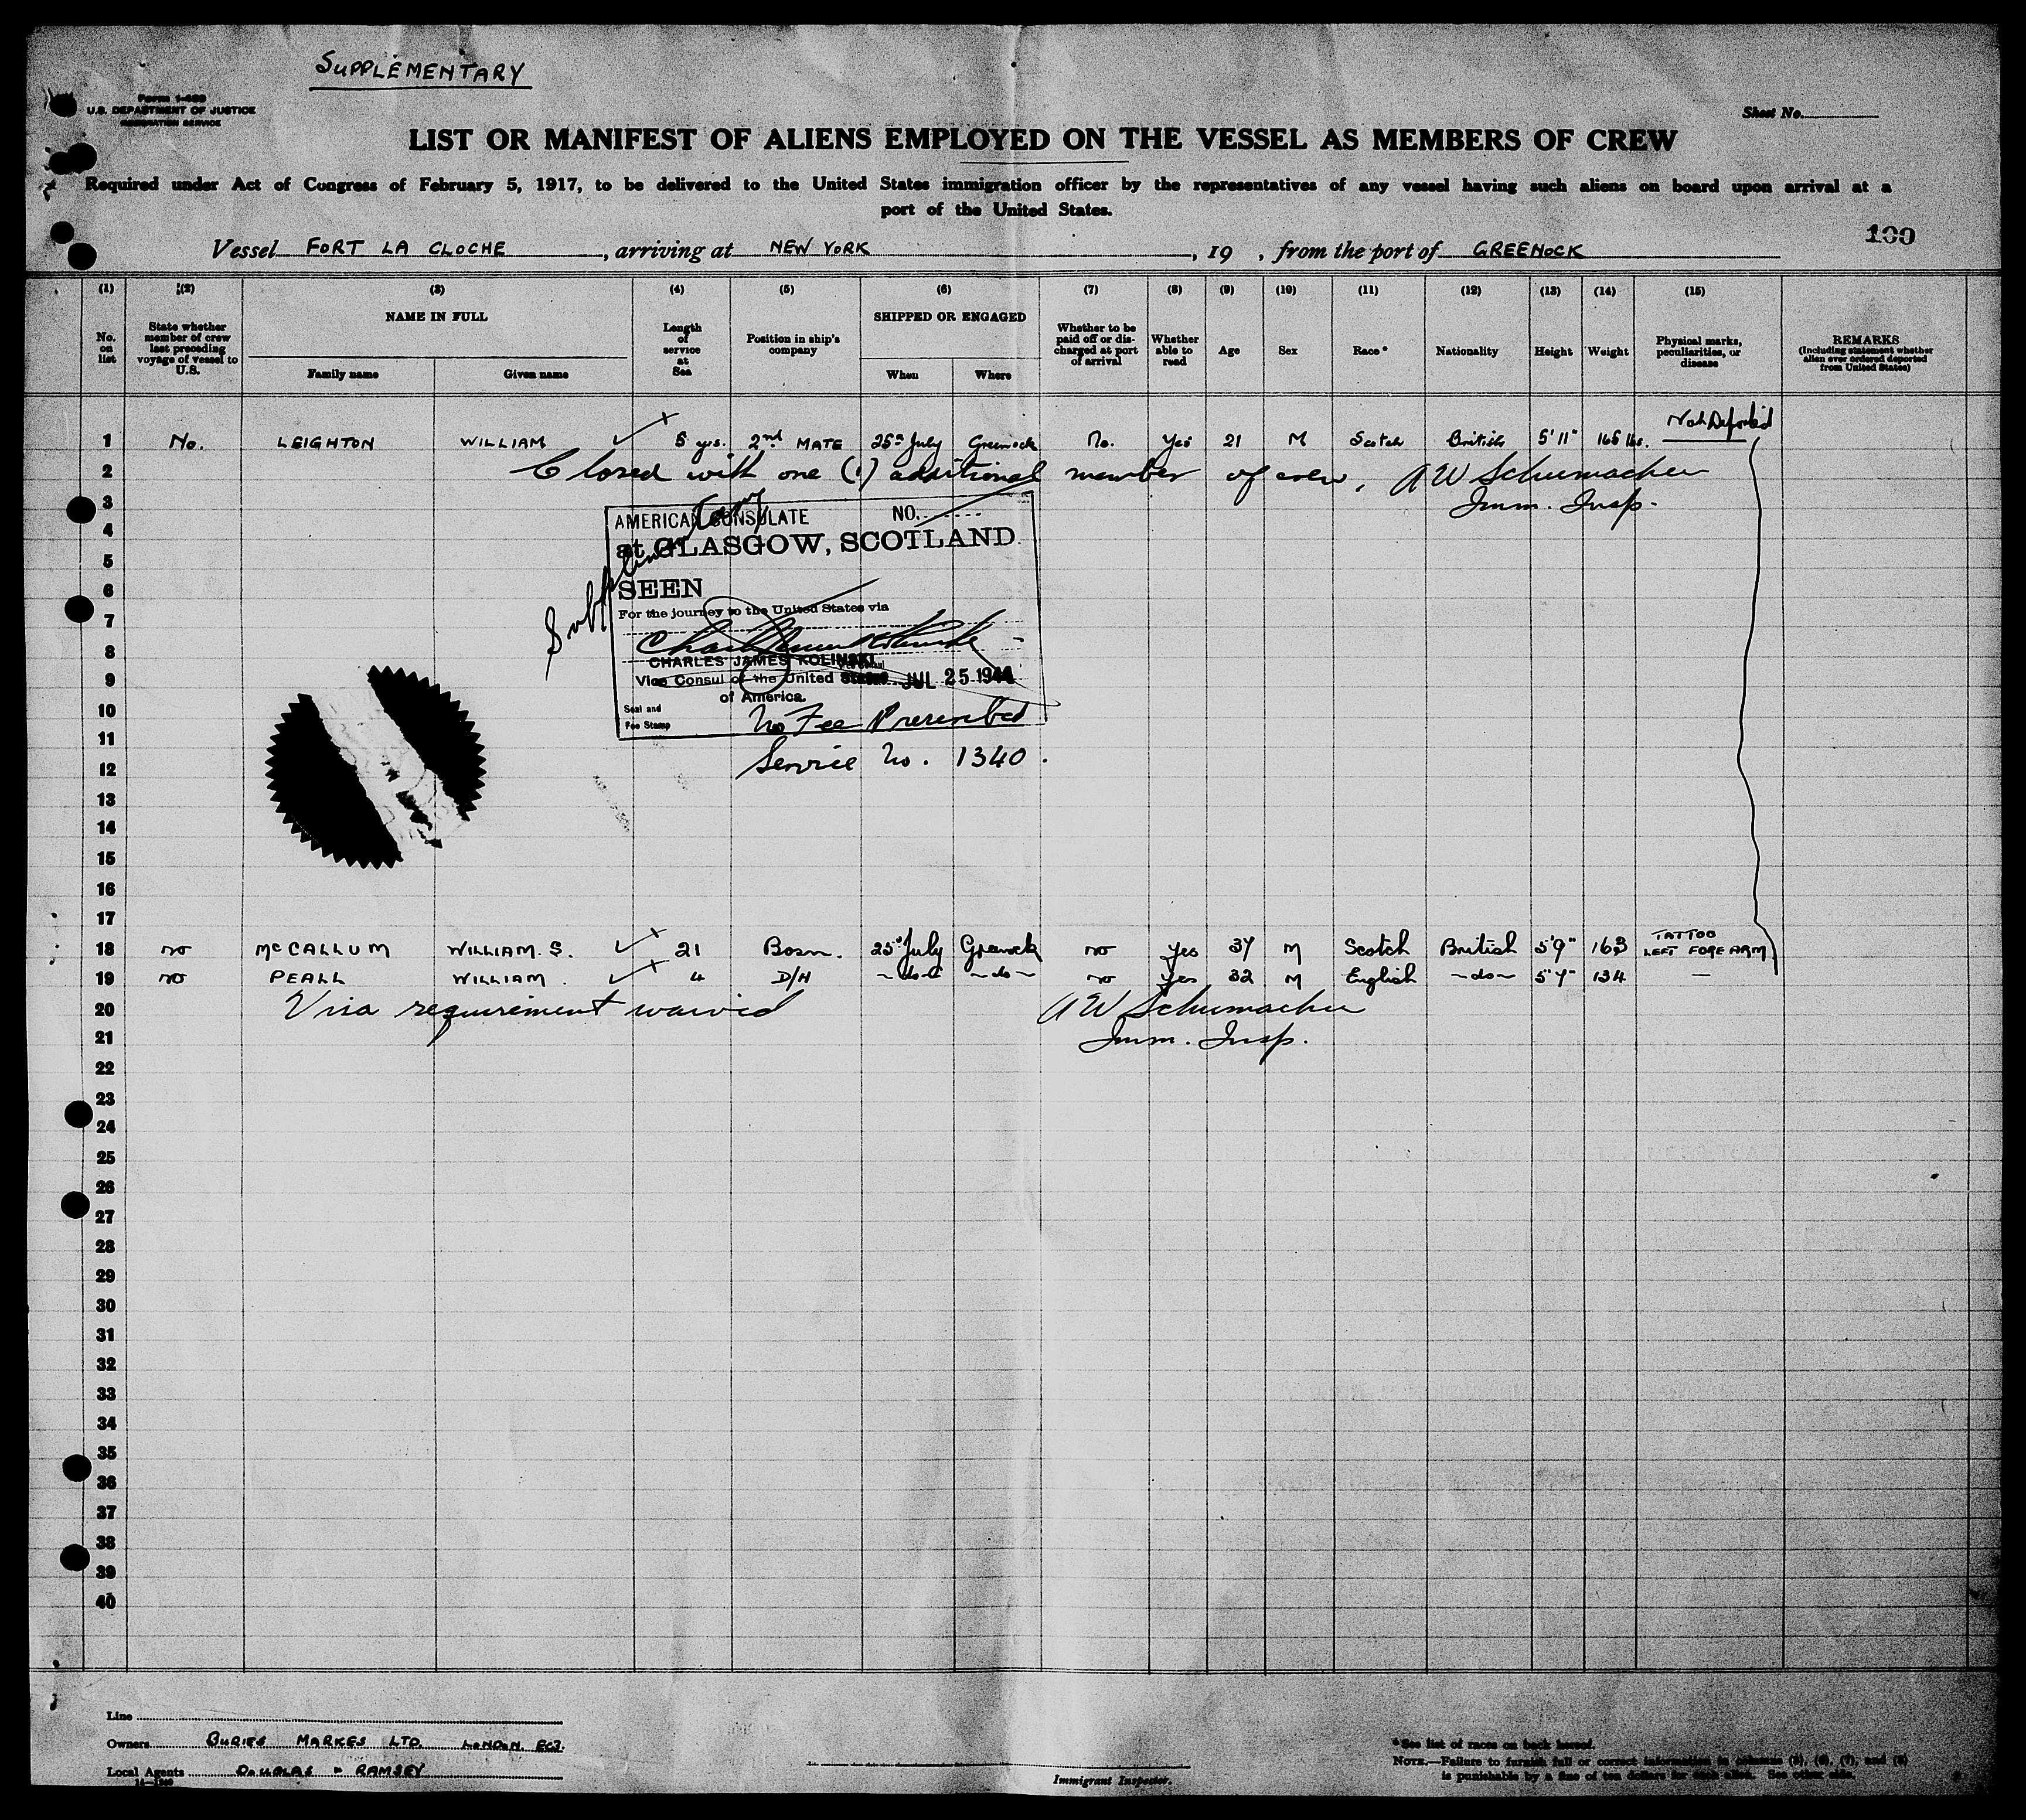 SUPPLEMENTARY
U.S. DEPARTMENT OF JUSTICE
IMMIGRATION SERVICE
Sheet No.
LIST OR MANIFEST OF ALIENS EMPLOYED ON THE VESSEL AS MEMBERS OF CREW
Required under Act of Congress of February 5, 1917, to be delivered to the United States immigration officer by the representatives of any vessel having such aliens on board upon arrival at a
port of the United States.
100
Vessel FORT LA CLOCHE, arriving at NEW YORK, 19 , from the port of GREENOCK
(1) (2) (3) (4) (5) (6) (7) (8) (9) (10) (11) (12) (13) (14) (15)
No. on list
State whether member of crew last preceding voyage of vessel to U.S.
NAME IN FULL
Family name Given name
Length of service at Sea
Position in ship's company
SHIPPED OR ENGAGED
When Where
Whether to be paid off or discharged at port of arrival
Whether able to read
Age
Sex
Race*
Nationality
Height
Weight
Physical marks, peculiarities, or disease
REMARKS
(Including statement whether alien ever ordered deported from United States)
Not Deported
1 No. LEIGHTON WILLIAM 5 yrs. 2nd MATE 25th July Greenock No. Yes 21 M Scotch British 5' 11" 165 lbs.
2 Closed with one (1) additional member of crew, A W Schumacher
3 Imm. Insp.
4
5
6
7
8
9
10
11
12
13
14
15
16
17
Supplementary Copy
AMERICAN CONSULATE NO.
at GLASGOW, SCOTLAND.
SEEN
For the journey to the United States via
CHARLES JAMES KOLINSKI
Vice Consul of the United States JUL 25 1944
of America.
Seal and
Fee Stamp
No Fee Prescribed
Service No. 1340.
18 no McCALLUM WILLIAM. S. 21 Bosn. 25th July Greenock no yes 37 M Scotch British 5'9" 163 TATTOO LEFT FOREARM
19 no PEALL WILLIAM. 4 D/H -do- -do- no yes 32 M English -do- 5'7" 134 —
20 Visa requirement waived A W Schumacher
21 Imm. Insp.
22
23
24
25
26
27
28
29
30
31
32
33
34
35
36
37
38
39
40
Line
Owners BURIES MARKES LTD. LONDON. EC3.
Local Agents DOUGLAS & RAMSEY
Immigrant Inspector.
*See list of races on back hereof.
NOTE.—Failure to furnish full or correct information in columns (3), (6), (7), and (8)
is punishable by a fine of ten dollars for each alien. See other side.